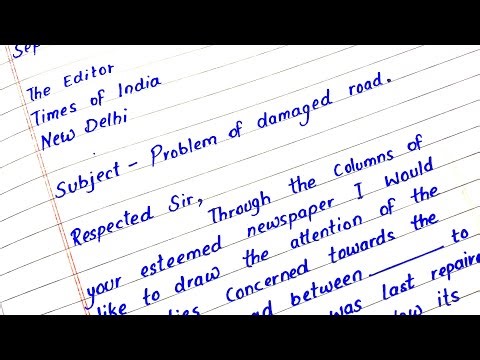 Sep
The Editor
Times of India
New Delhi
Subject - Problem of damaged road.
Respected Sir,
Through the Columns of
your esteemed newspaper I would
like to draw the attention of the
Concerned towards the
between ________ to
was last repaired
its